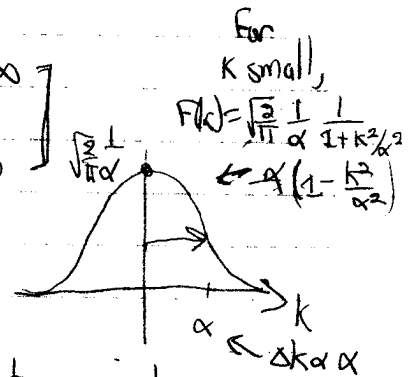 For
K small,
∞ ]
F(k) = √(2/π) 1/α 1/(1+k²/α²)
√(2/π) 1/α
← A(1 - k²/α²)
K
α ← Δk α α